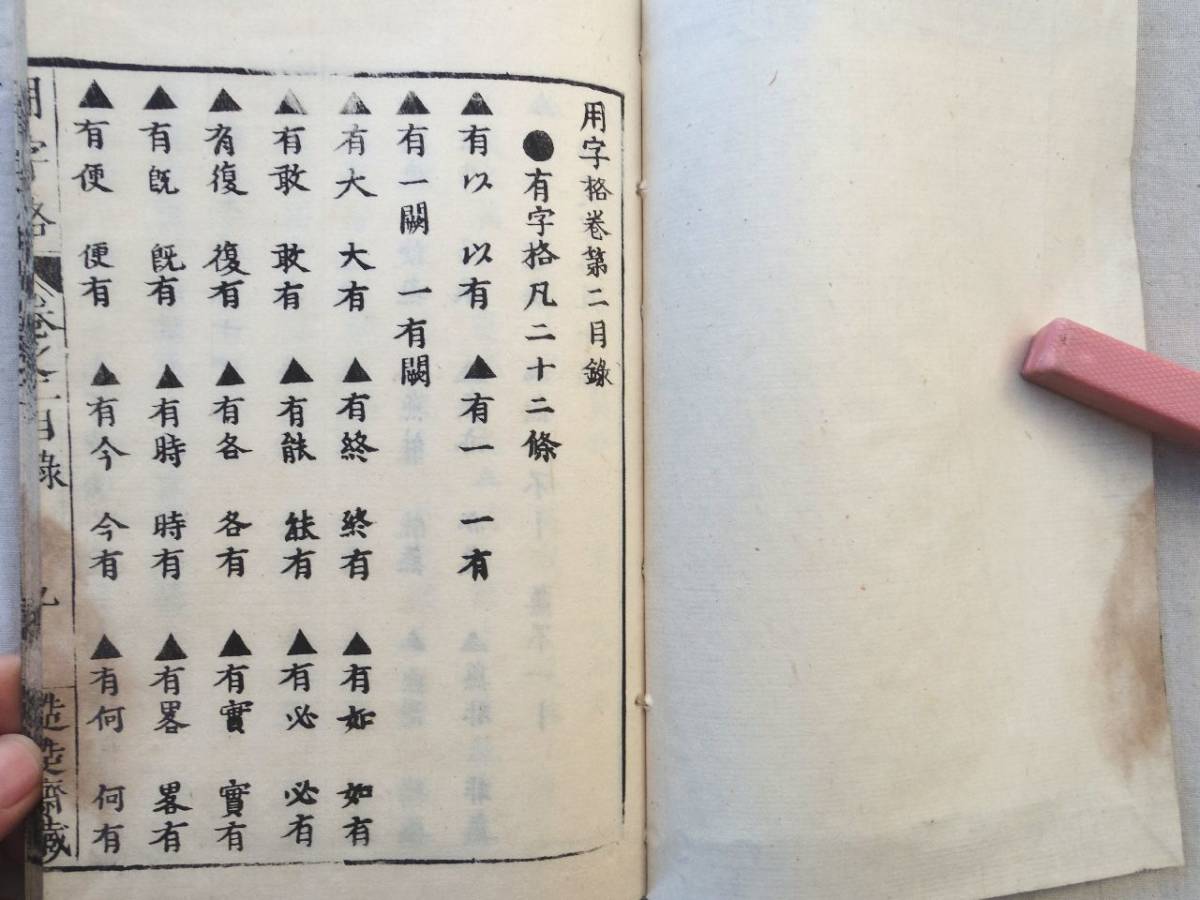 用字格卷第二目錄
●有字格凡二十二條
▲有以 以有 ▲有一 一有
▲有一闕 一有闕
▲有大 大有 ▲有終 終有 ▲有如 如有
▲有敢 敢有 ▲有能 能有 ▲有必 必有
▲有復 復有 ▲有各 各有 ▲有實 實有
▲有既 既有 ▲有時 時有 ▲有畧 畧有
▲有便 便有 ▲有今 今有 ▲有何 何有
用字格 卷之二目錄